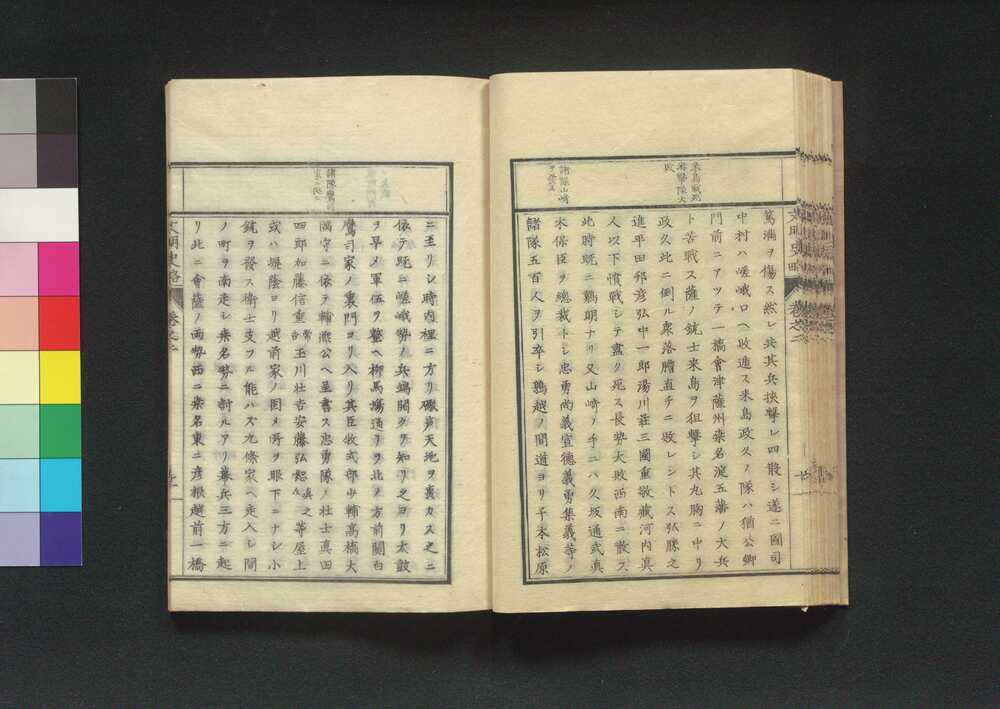 来島戦死
遊撃隊大
敗
諸隊山崎
篤満ヲ傷ス然レ共其兵挾撃シ四散シ遂ニ國司
中村ハ嵯峨口ヘ敗迯ス来島政久ノ隊ハ猶公卿
門前ニアツテ一橋會津薩州桑名淀五藩ノ大兵
ト苦戦ス薩ノ銃士来島ヲ狙撃シ其丸胸ニ中リ
政久此ニ倒ル衆落膽直チニ敗レントス弘勝之
進平田邦彦弘中一郎湯川荘三國重敬藏河内真
人以下憤戦シテ盡ク死ス長勢大敗西南ニ散ス
此時既ニ鷄明ナリ又山崎ノ手ニハ久坂通武真
木保臣ヲ總裁トシ忠勇尚義宣德義勇集義等ノ
諸隊五百人ヲ引卒シ鶉越ノ間道ヨリ千本松原
文明史略
巻之二
諸隊鷹司
ニ至リシ時内裡ニ方リ礮声天地ヲ裏カス之ニ
依テ既ニ嵯峨勢ノ兵端開クヲ知リ之ヨリ太鼓
ヲ早メ軍伍ヲ整ヘ栁馬塲通ヲ北ノ方前關白
鷹司家ノ裏門ヨリ入リ其臣牧式部少輔髙橋大
隅守ニ依テ輔凞公ヘ呈書ス忠勇隊ノ壮士真田
四郎加藤信重常吉玉川壮吉安藤弘恕真之等屋上
或ハ堀蔭ヨリ越前家ノ囲メ所ヲ眼下ニナシ小
銃ヲ發ス衞士支フル能ハズ九條家ヘ走入シ間
ノ町ヲ南走シ桑名勢ニ斬ルアリ幕兵三方ニ起
リ此ニ會薩ノ両勢西ニ桑名東ニ彦根越前一橋
文明史略
巻之二